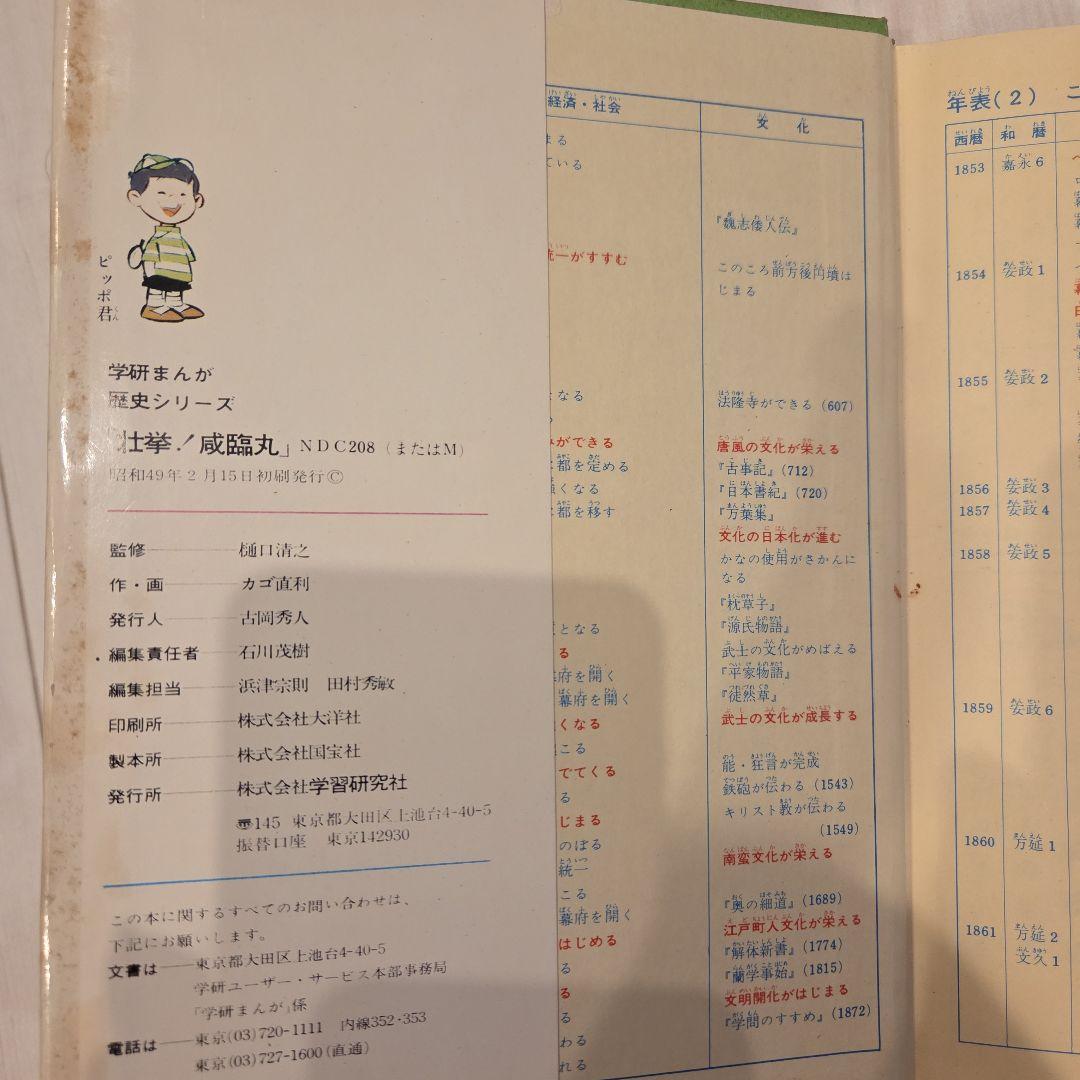 ピッポ君
学研まんが
歴史シリーズ
「壮挙！咸臨丸」NDC208（またはM）
昭和49年2月15日初刷発行©
監修 樋口清之
作・画 カゴ直利
発行人 古岡秀人
編集責任者 石川茂樹
編集担当 浜津宗則 田村秀敏
印刷所 株式会社大洋社
製本所 株式会社国宝社
発行所 株式会社学習研究社
〠145 東京都大田区上池台4-40-5
振替口座 東京142930
この本に関するすべてのお問い合わせは、
下記にお願いします。
文書は 東京都大田区上池台4-40-5
学研ユーザー・サービス本部事務局
「学研まんが」係
電話は 東京(03)720-1111 内線352・353
東京(03)727-1600(直通)
経済・社会
まる
ている
統一がすすむ
なる
みができる
都を定める
くなる
都を移す
となる
る
府を開く
幕府を開く
くなる
こる
でてくる
る
じまる
のぼる
統一
こる
幕府を開く
はじめる
る
る
る
わる
れる
文化
『魏志倭人伝』
このころ前方後円墳は
じまる
法隆寺ができる（607）
唐風の文化が栄える
『古事記』（712）
『日本書紀』（720）
『万葉集』
文化の日本化が進む
かなの使用がさかんに
なる
『枕草子』
『源氏物語』
武士の文化がめばえる
『平家物語』
『徒然草』
武士の文化が成長する
能・狂言が完成
鉄砲が伝わる（1543）
キリスト教が伝わる
（1549）
南蛮文化が栄える
『奥の細道』（1689）
江戸町人文化が栄える
『解体新書』（1774）
『蘭学事始』（1815）
文明開化がはじまる
『学問のすすめ』（1872）
年表(2)
西暦 和暦
1853 嘉永6
1854 安政1
1855 安政2
1856 安政3
1857 安政4
1858 安政5
1859 安政6
1860 万延1
1861 万延2
文久1